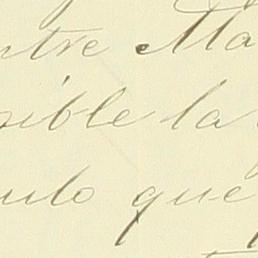 ntre Ma
sible la
ulo que